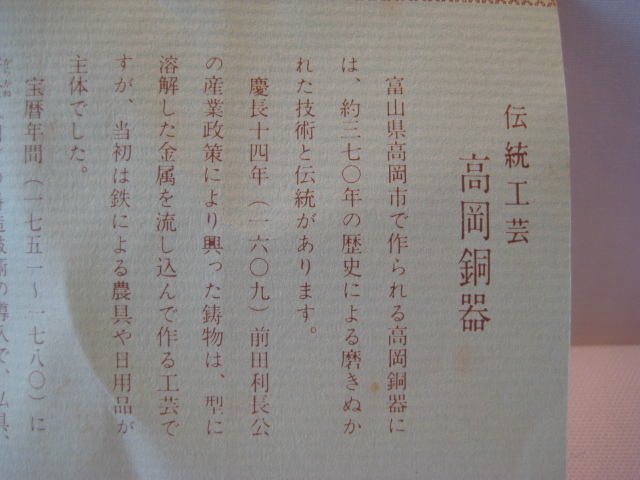 伝統工芸
高岡銅器
富山県高岡市で作られる高岡銅器に
は、約三七〇年の歴史による磨きぬか
れた技術と伝統があります。
慶長十四年（一六〇九）前田利長公
の産業政策により興った鋳物は、型に
溶解した金属を流し込んで作る工芸で
すが、当初は鉄による農具や日用品が
主体でした。
宝暦年間（一七五一～一七八〇）に
の導入で、仏具、